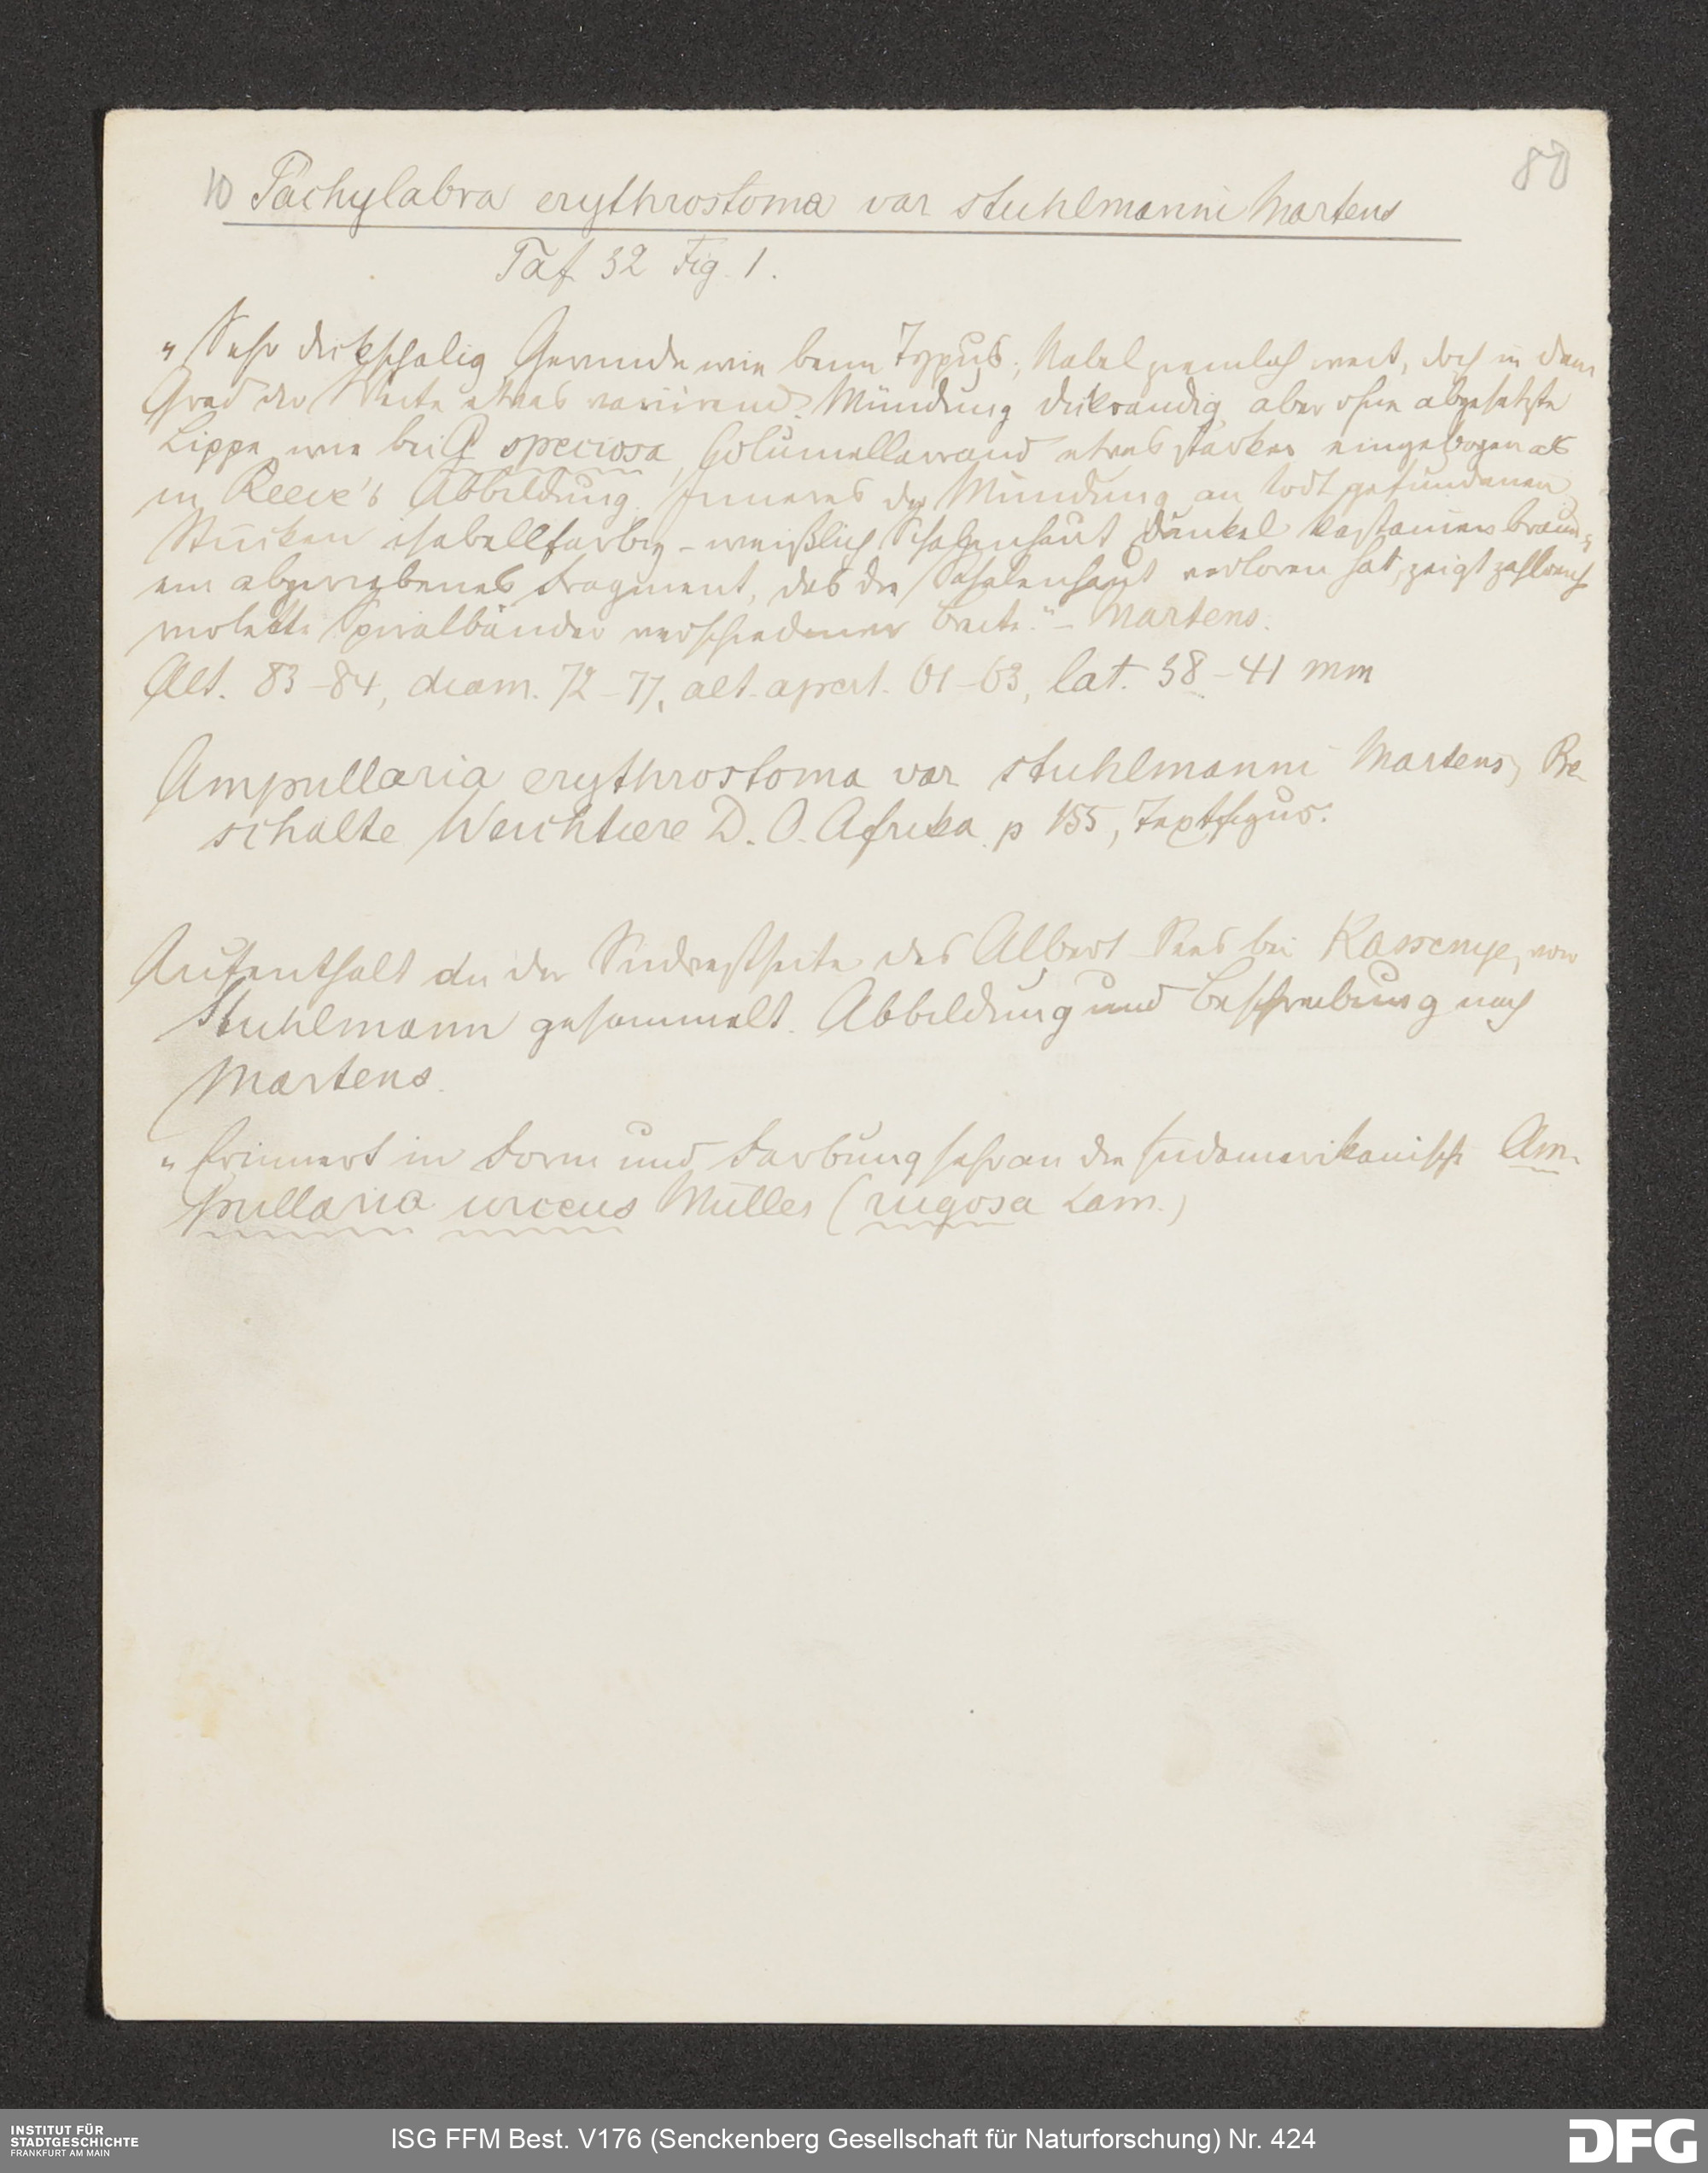 80
10 Pachylabra erythrostoma var stuhlmanni Martens
Taf 32 Fig. 1.
„Sehr dickschalig Gewinde wie beim Typus; Nabel ziemlich weit, doch in dem
Grad der Weite etwas variirend. Mündung dickrandig aber ohne abgesetzte
Lippe wie bei P speciosa, Columellarrand etwas stärker eingebogen als
in Reeve's Abbildung. Inneres der Mündung an todt gefundenen
Stücken isabellfarbig-weißlich Schalenhaut dunkel kastanienbraun;
ein abgeriebenes Fragment, das die Schalenhaut verloren hat, zeigt zahlreiche
violette Spiralbänder verschiedener Breite." – Martens.
Alt. 83–84, diam. 72–77, alt. apert. 61–63, lat. 38–41 mm
Ampullaria erythrostoma var stuhlmanni Martens, Be-
schalte Weichtiere D. O. Afrika p 155, Textfigur.
Aufenthalt an der Südwestseite des Albert-Sees bei Kassenye, von
Stuhlmann gesammelt. Abbildung und Beschreibung nach
Martens.
„Erinnert in Form und Färbung sehr an die südamerikanische Am-
pullaria urceus Müller (rugosa Lam.)
INSTITUT FÜR
STADTGESCHICHTE
FRANKFURT AM MAIN
ISG FFM Best. V176 (Senckenberg Gesellschaft für Naturforschung) Nr. 424
DFG